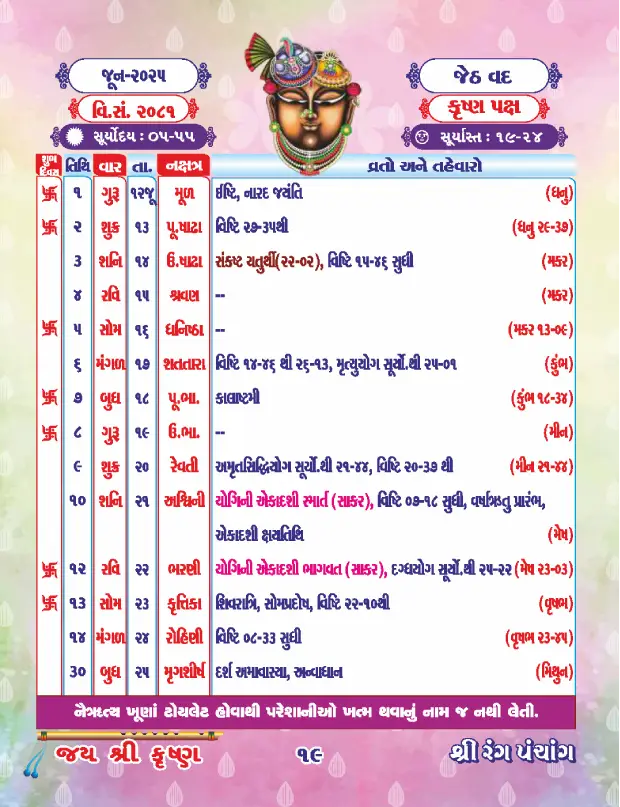 જૂન-૨૦૨૫ જેઠ વદ
વિ.સં. ૨૦૮૧ કૃષ્ણ પક્ષ
સૂર્યોદય : ૦૫-૫૫ સૂર્યાસ્ત : ૧૯-૨૪
શુભ દિવસ તિથિ વાર તા. નક્ષત્ર વ્રતો અને તહેવારો
卐 ૧ ગુરૂ ૧૨જૂ મૂળ ઈષ્ટિ, નારદ જયંતિ (ધનુ)
卐 ૨ શુક્ર ૧૩ પૂ.ષાઢા વિષ્ટિ ૨૭-૩૫થી (ધનુ ૨૯-૩૭)
૩ શનિ ૧૪ ઉ.ષાઢા સંકષ્ટ ચતુર્થી(૨૨-૦૨), વિષ્ટિ ૧૫-૪૬ સુધી (મકર)
૪ રવિ ૧૫ શ્રવણ -- (મકર)
卐 ૫ સોમ ૧૬ ધનિષ્ઠા -- (મકર ૧૩-૦૯)
૬ મંગળ ૧૭ શતતારા વિષ્ટિ ૧૪-૪૬ થી ૨૬-૧૩, મૃત્યુયોગ સૂર્યો.થી ૨૫-૦૧ (કુંભ)
卐 ૭ બુધ ૧૮ પૂ.ભા. કાલાષ્ટમી (કુંભ ૧૮-૩૪)
卐 ૮ ગુરૂ ૧૯ ઉ.ભા. -- (મીન)
૯ શુક્ર ૨૦ રેવતી અમૃતસિદ્ધિયોગ સૂર્યો.થી ૨૧-૪૪, વિષ્ટિ ૨૦-૩૭ થી (મીન ૨૧-૪૪)
૧૦ શનિ ૨૧ અશ્વિની યોગિની એકાદશી સ્માર્ત (સાકર), વિષ્ટિ ૦૭-૧૮ સુધી, વર્ષાઋતુ પ્રારંભ,
એકાદશી ક્ષયતિથિ (મેષ)
卐 ૧૨ રવિ ૨૨ ભરણી યોગિની એકાદશી ભાગવત (સાકર), દગ્ધયોગ સૂર્યો.થી ૨૫-૨૨ (મેષ ૨૩-૦૩)
卐 ૧૩ સોમ ૨૩ કૃત્તિકા શિવરાત્રિ, સોમપ્રદોષ, વિષ્ટિ ૨૨-૧૦થી (વૃષભ)
૧૪ મંગળ ૨૪ રોહિણી વિષ્ટિ ૦૮-૩૩ સુધી (વૃષભ ૨૩-૪૫)
૩૦ બુધ ૨૫ મૃગશીર્ષ દર્શ અમાવાસ્યા, અન્વાધાન (મિથુન)
નૈઋત્ય ખૂણાં ટોયલેટ હોવાથી પરેશાનીઓ ખત્મ થવાનું નામ જ નથી લેતી.
જય શ્રી કૃષ્ણ ૧૯ શ્રી રંગ પંચાંગ